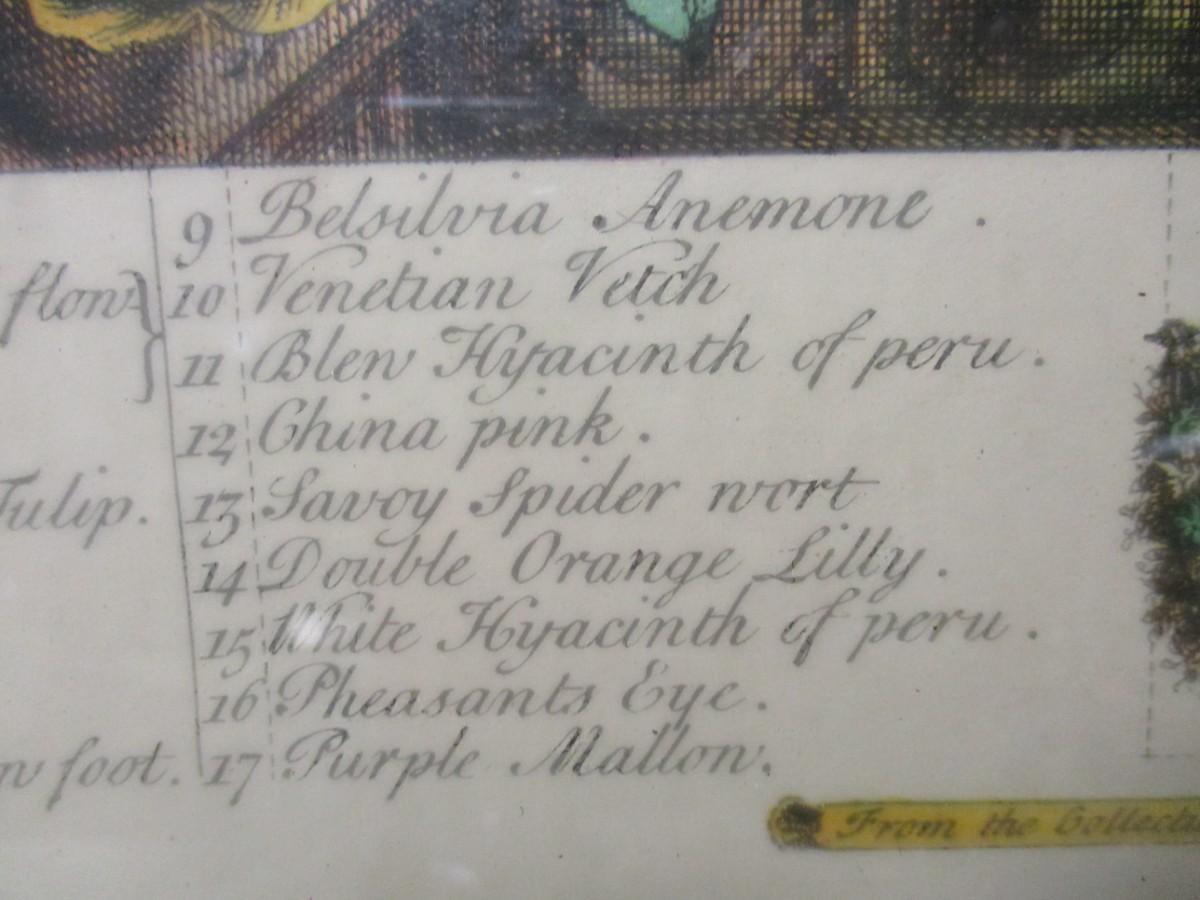 9 Belsilvia Anemone .
flow 10 Venetian Vetch
11 Blew Hyacinth of peru .
12 China pink .
Tulip. 13 Savoy Spider wort
14 Double Orange Lilly .
15 White Hyacinth of peru .
16 Pheasants Eye .
w foot. 17 Purple Mallow.
From the Collecti